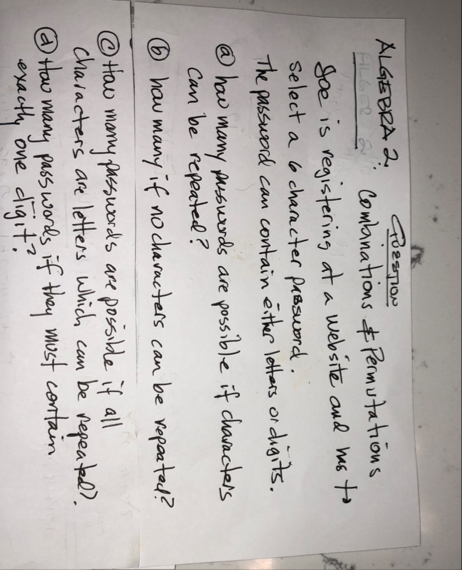 Question
ALGEBRA 2: Combinations & Permutations
Joe is registering at a website and has to
select a 6 character password.
The password can contain either letters or digits.
(a) how many passwords are possible if characters
can be repeated?
(b) how many if no characters can be repeated?
(c) How many passwords are possible if all
characters are letters which can be repeated?
(d) How many passwords if they must contain
exactly one digit?